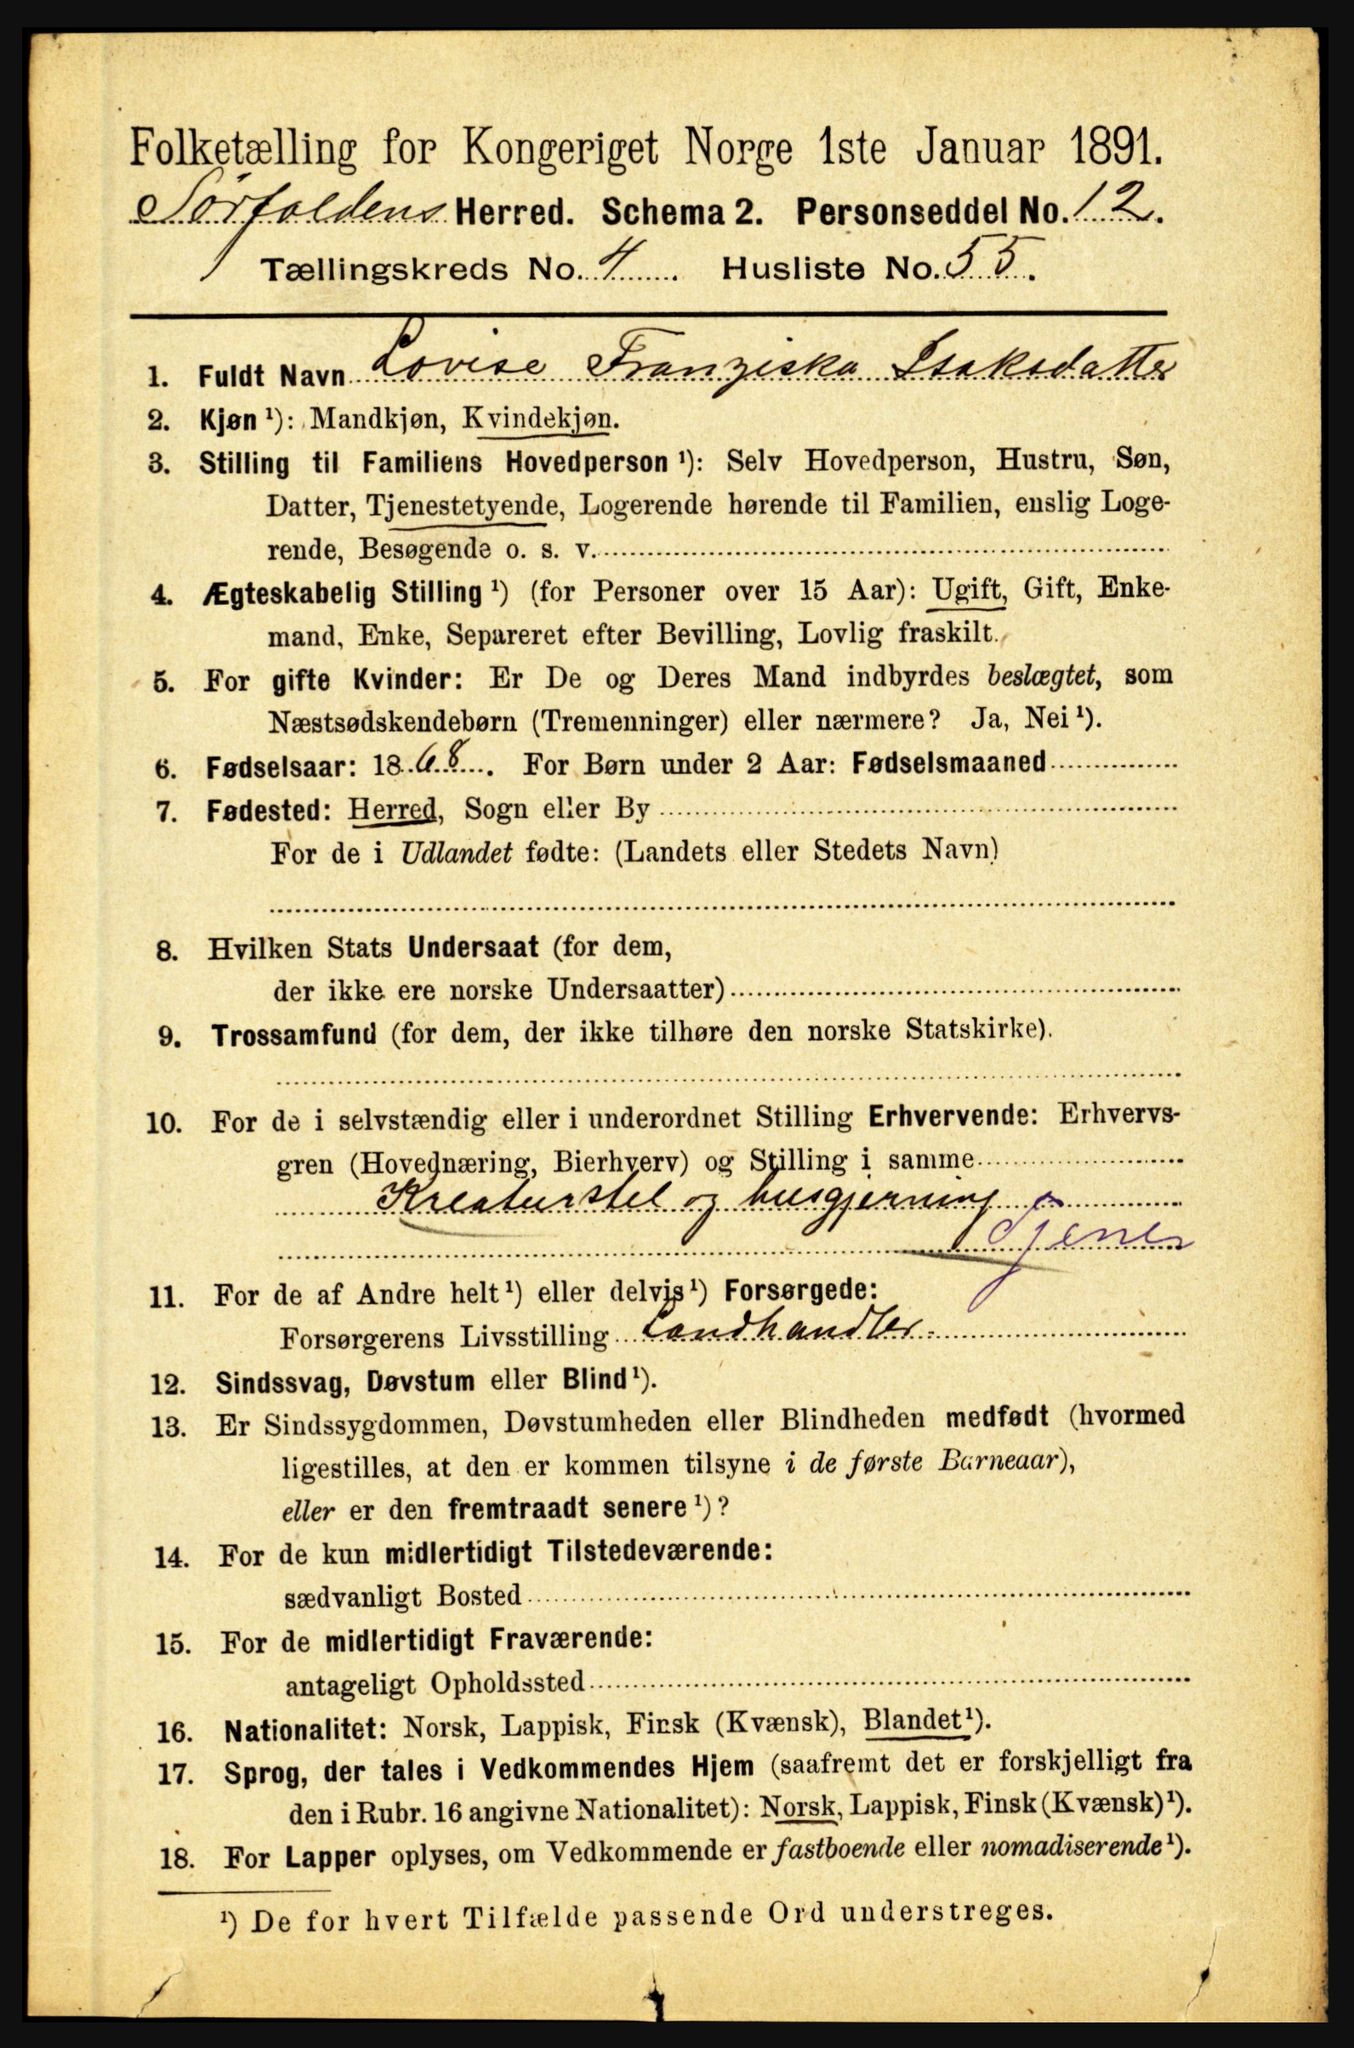 Folketælling for Kongeriget Norge 1ste Januar 1891.
Sørfoldens Herred. Schema 2. Personseddel No. 12.
Tællingskreds No. 4. Husliste No. 55.
1. Fuldt Navn Lovise Franziska Isaksdatter
2. Kjøn ¹): Mandkjøn, Kvindekjøn.
3. Stilling til Familiens Hovedperson ¹): Selv Hovedperson, Hustru, Søn,
Datter, Tjenestetyende, Logerende hørende til Familien, enslig Loge-
rende, Besøgende o. s. v.
4. Ægteskabelig Stilling ¹) (for Personer over 15 Aar): Ugift, Gift, Enke-
mand, Enke, Separeret efter Bevilling, Lovlig fraskilt.
5. For gifte Kvinder: Er De og Deres Mand indbyrdes beslægtet, som
Næstsødskendebørn (Tremenninger) eller nærmere? Ja, Nei ¹).
6. Fødselsaar: 1868. For Børn under 2 Aar: Fødselsmaaned
7. Fødested: Herred, Sogn eller By
For de i Udlandet fødte: (Landets eller Stedets Navn)
8. Hvilken Stats Undersaat (for dem,
der ikke ere norske Undersaatter)
9. Trossamfund (for dem, der ikke tilhøre den norske Statskirke).
10. For de i selvstændig eller i underordnet Stilling Erhvervende: Erhvervs-
gren (Hovednæring, Bierhverv) og Stilling i samme
Kreaturstel og husgjerning
Tjener
11. For de af Andre helt ¹) eller delvis ¹) Forsørgede:
Forsørgerens Livsstilling Landhandler.
12. Sindssvag, Døvstum eller Blind ¹).
13. Er Sindssygdommen, Døvstumheden eller Blindheden medfødt (hvormed
ligestilles, at den er kommen tilsyne i de første Barneaar),
eller er den fremtraadt senere ¹)?
14. For de kun midlertidigt Tilstedeværende:
sædvanligt Bosted
15. For de midlertidigt Fraværende:
antageligt Opholdssted
16. Nationalitet: Norsk, Lappisk, Finsk (Kvænsk), Blandet ¹).
17. Sprog, der tales i Vedkommendes Hjem (saafremt det er forskjelligt fra
den i Rubr. 16 angivne Nationalitet): Norsk, Lappisk, Finsk (Kvænsk) ¹).
18. For Lapper oplyses, om Vedkommende er fastboende eller nomadiserende ¹).
¹) De for hvert Tilfælde passende Ord understreges.